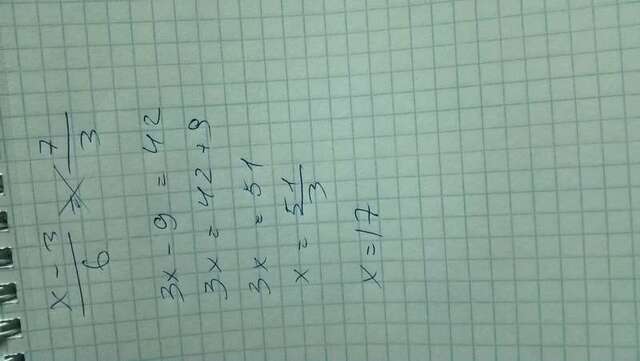 x - 3 / 6 = 7 / 3
3x - 9 = 42
3x = 42 + 9
3x = 51
x = 51 / 3
x = 17